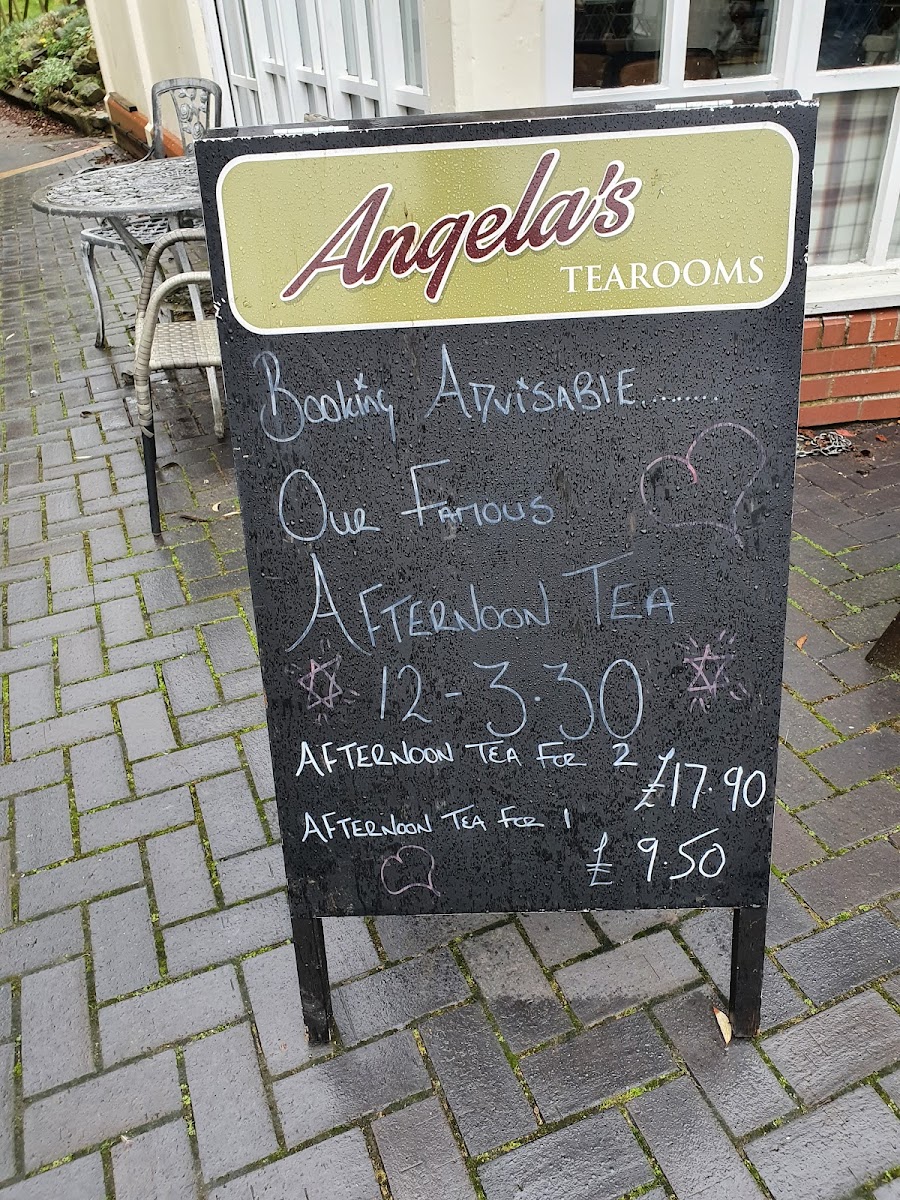 Angela's
TEAROOMS
Booking Advisable.........
Our Famous
Afternoon Tea
12 - 3.30
Afternoon Tea For 2
£17.90
Afternoon Tea For 1
£9.50